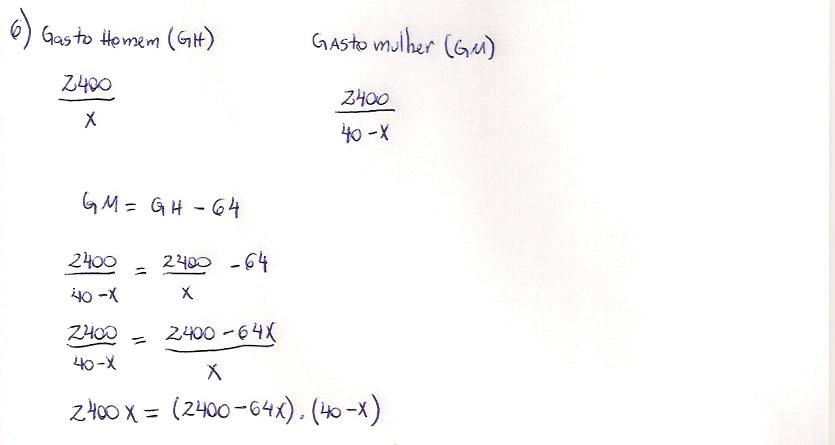 6) Gasto Homem (GH) GASto mulher (GM)
2400
x
2400
40-x
GM = GH - 64
2400/40-x = 2400/x - 64
2400/40-x = 2400-64x/x
2400x = (2400-64x).(40-x)